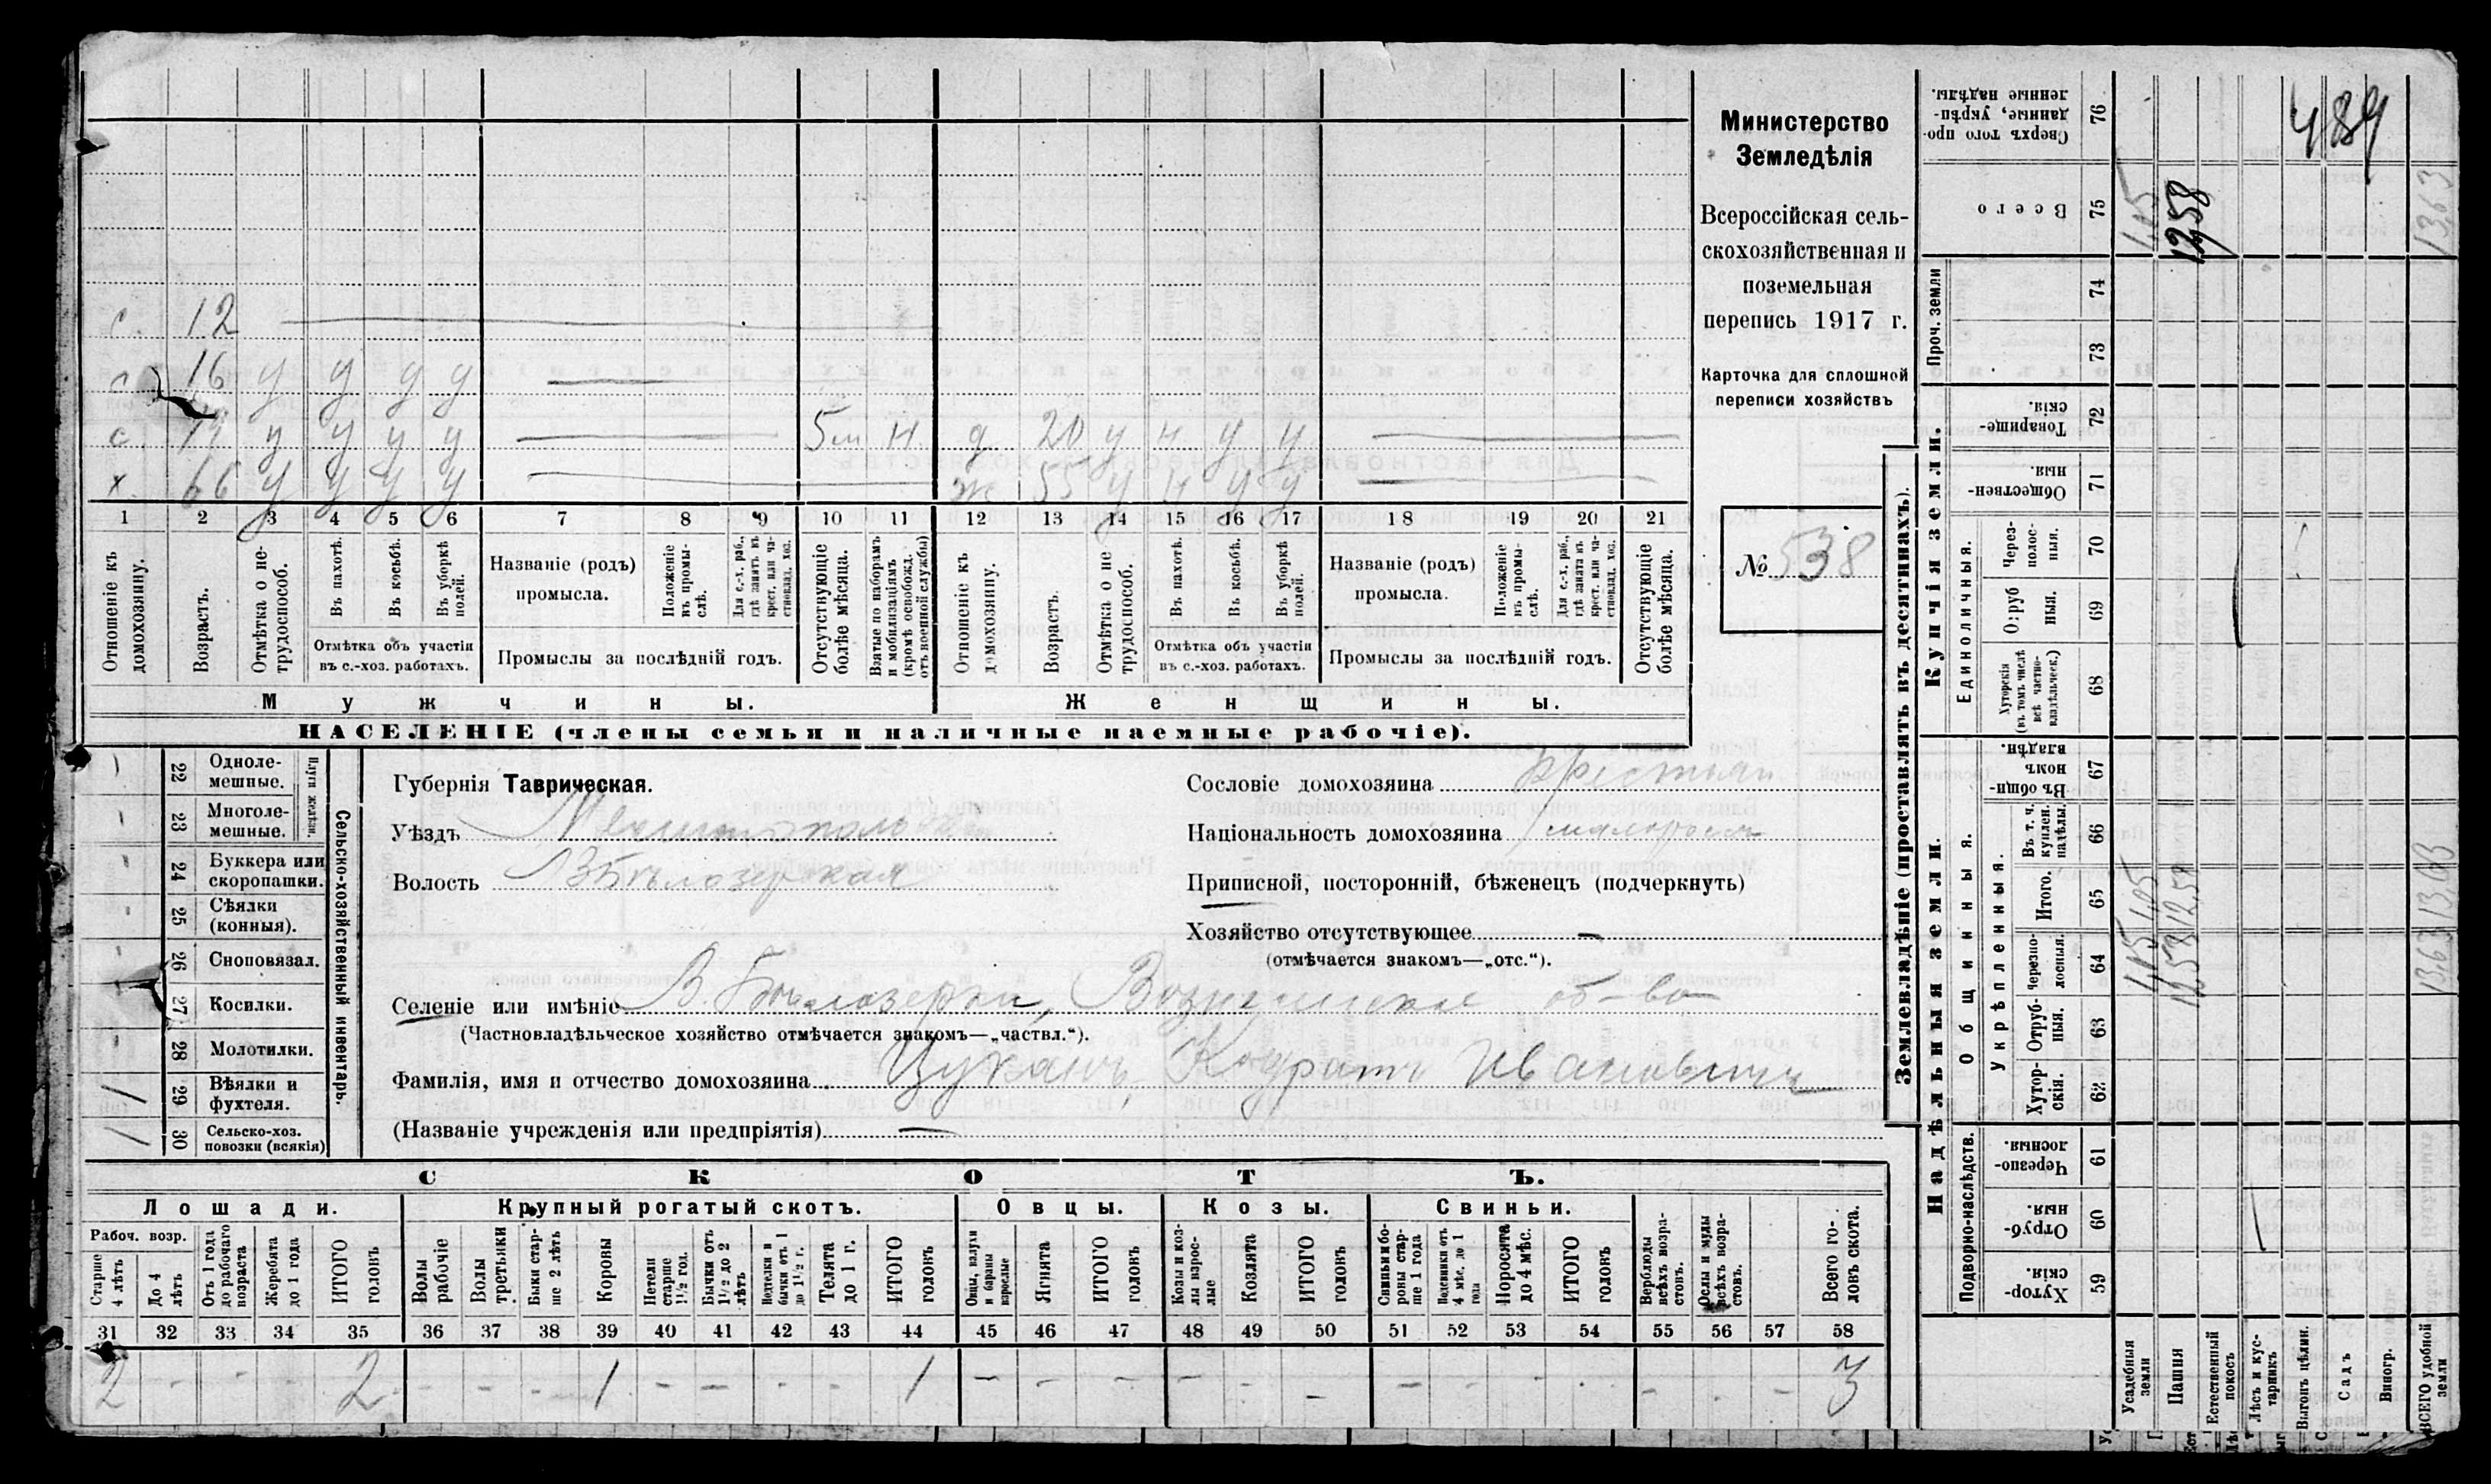 с. 12
16 у у у у
с. у у у у 5 м н д 20 у н у у
х. 66 у у у у ж 55 у н у у
1 2 3 4 5 6 7 8 9 10 11 12 13 14 15 16 17 18 19 20 21
Отношеніе къ домохозяину.
Возрастъ.
Отмѣтка о не-трудоспособ.
Въ пахотѣ.
Въ косьбѣ.
Въ уборкѣ полей.
Отмѣтка объ участіи
въ с.-хоз. работахъ.
Названіе (родъ)
промысла.
Положеніе въ промы-слѣ.
Для с.-х. раб., гдѣ занятъ въ крест. или ча-стновлад. хоз.
Промыслы за послѣдній годъ.
Отсутствующіе болѣе мѣсяца.
Взятые по наборамъ и мобилизаціямъ (кромѣ освобожд. отъ военной службы)
Отношеніе къ домохозяину.
Возрастъ.
Отмѣтка о не трудоспособ.
Въ пахотѣ.
Въ косьбѣ.
Въ уборкѣ полей.
Отмѣтка объ участіи
въ с.-хоз. работахъ.
Названіе (родъ)
промысла.
Положеніе въ промы-слѣ.
Для с.-х. раб., гдѣ занята въ крест. или ча-стновлад. хоз.
Промыслы за послѣдній годъ.
Отсутствующіе болѣе мѣсяца.
Мужчины. Женщины.
НАСЕЛЕНІЕ (члены семьи и наличные наемные рабочіе).
Министерство
Земледѣлія
Всероссійская сель-
скохозяйственная и
поземельная
перепись 1917 г.
Карточка для сплошной
переписи хозяйствъ
№ 538
Сельско-хозяйственный инвентарь.
Плуги желѣзн.
22 Одноле-мешные.
23 Многоле-мешные.
24 Буккера или скоропашки.
25 Сѣялки (конныя).
26 Сноповязал.
27 Косилки.
28 Молотилки.
29 Вѣялки и фухтеля.
30 Сельско-хоз. повозки (всякія)
Губернія Таврическая.
Уѣздъ Мелитопольскій
Волость В Бѣлозерская
Сословіе домохозяина крестьян
Національность домохозяина малоросс
Приписной, посторонній, бѣженецъ (подчеркнуть)
Хозяйство отсутствующее –
(отмѣчается знакомъ—„отс.“).
Селеніе или имѣніе В. Бѣлозерка, Вознесенское об-во
(Частновладѣльческое хозяйство отмѣчается знакомъ—„частвл.“).
Фамилія, имя и отчество домохозяина Цуканъ, Кодратъ Ивановичъ
(Названіе учрежденія или предпріятія) —
СКОТЪ.
Лошади. Крупный рогатый скотъ. Овцы. Козы. Свиньи.
Рабоч. возр.
Старше 4 лѣтъ
До 4 лѣтъ
Отъ 1 года до рабочаго возраста
Жеребята до 1 года
ИТОГО головъ
Волы рабочіе
Волы третьяки
Быки стар-ше 2 лѣтъ
Коровы
Нетели старше 1½ год.
Бычки отъ 1½ до 2 лѣтъ
Нетелки и бычки отъ 1 до 1½ г.
Телята до 1 г.
ИТОГО головъ
Овцы, валухи и бараны взрослые
Ягнята
ИТОГО головъ
Козы и коз-лы взрос-лые
Козлята
ИТОГО головъ
Свиньи и бо-ровы стар-ше 1 года
Подсвинки отъ 4 мѣс. до 1 года
Поросята до 4 мѣс.
ИТОГО головъ
Верблюды всѣхъ возра-стовъ.
Ослы и мулы всѣхъ возра-стовъ.
Всего го-ловъ скота.
31 32 33 34 35 36 37 38 39 40 41 42 43 44 45 46 47 48 49 50 51 52 53 54 55 56 57 58
2 - - - 2 - - - 1 - - - - 1 - - - - - - - - - - - - - 3
Землевладѣніе (проставлять въ десятинахъ).
Купчія земли.
Надѣльныя земли.
Сверхъ того про-данные, укрѣп-ленные надѣлы. 76
Всего 75
Проч. земли 74 73
Товарище-скія. 72
Обществен-ныя. 71
Единоличныя.
Через-полос-ныя. 70
Отруб ныя. 69
Хуторскія (въ томъ числѣ всѣ частно-владѣльческ.) 68
Общинныя.
Въ общин-номъ владѣн. 67
Укрѣпленныя.
Въ т. ч. куплен. надѣлы. 66
Итого. 65
Черезпо-лосныя. 64
Отруб-ныя. 63
Хутор-скія. 62
Подворно-наслѣдств.
Черезпо-лосныя 61
Отруб-ныя. 60
Хутор-скія. 59
Усадебныя земли 1,05 1,05 1,05
Пашня 12,58 12,58 12,58
Естественный покосъ
Лѣсъ и кус-тарникъ
Выгонъ цѣлин.
Садъ
Виногр.
ВСЕГО удобной земли 13,63 13,63 13,63
489